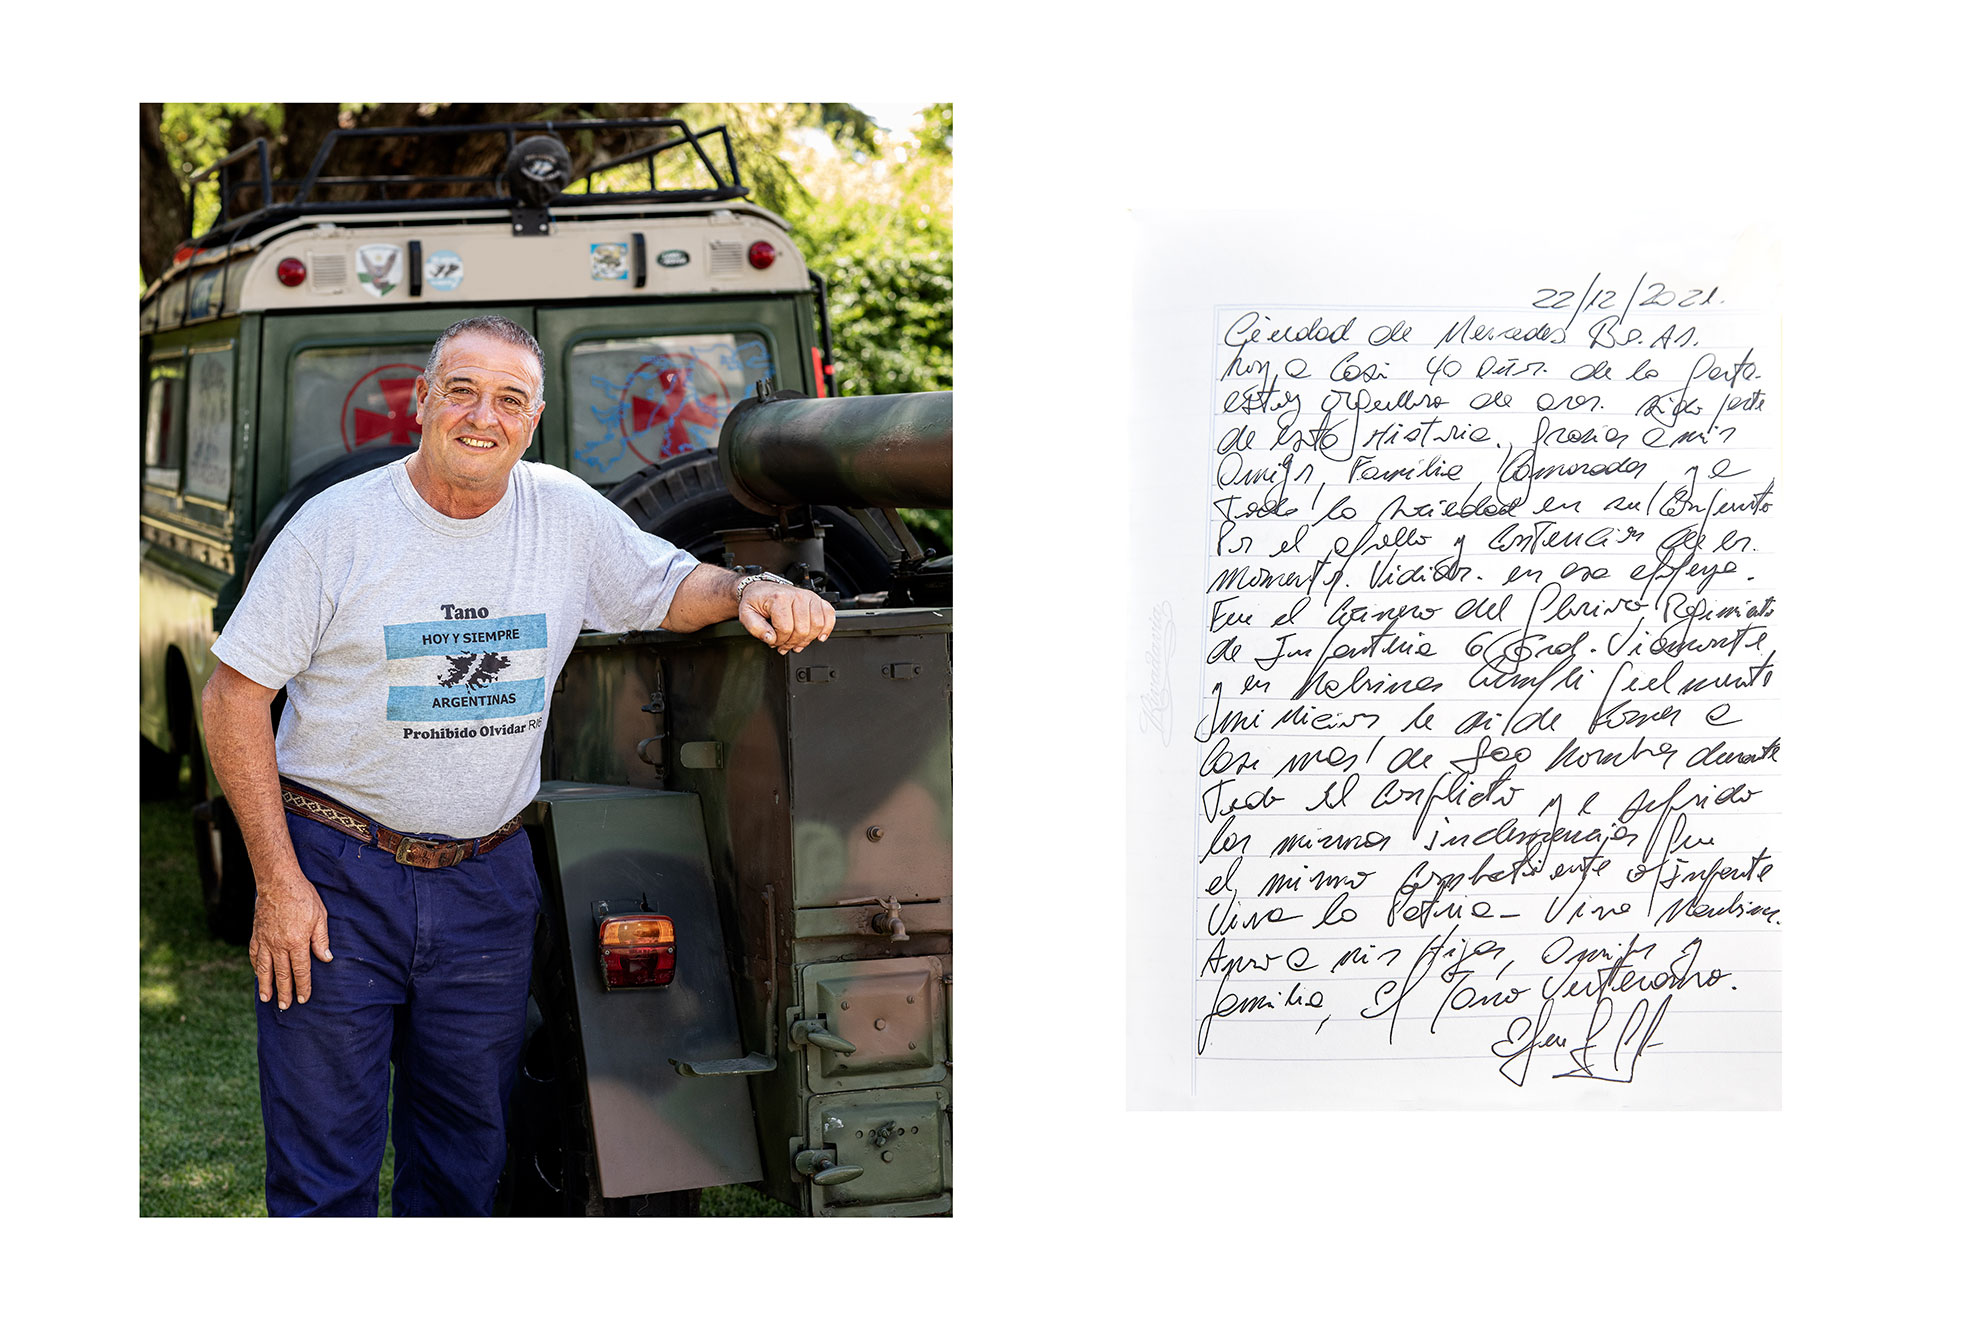 Tano
HOY Y SIEMPRE
ARGENTINAS
Prohibido Olvidar RI6
22/12/2021.
Ciudad de Mercedes Bs. As.
hoy a casi 40 años. de la Gesta.
estoy orgulloso de aver. sido parte
de esta Historia, gracias a mis
amigos, Familia, Camaradas y a
Toda la sociedad en su conjunto
Por el apollo y contencion de los.
momentos. Vividos. en esa epopeya.
Fui el cosinero del glorioso Regimiento
de Infanteria 6 Gral. Viamonte,
y en Malvinas cumpli fielmente
mi mision, le di de comer a
casi mas de 800 hombres durante
Todo el conflicto y e sufrido
las mismas inclemencias que
el mismo combatiente o infante
Viva la Patria - Viva Malvinas.
Amo a mis Hijas, Amigos y
familia, El Tano Veterano.